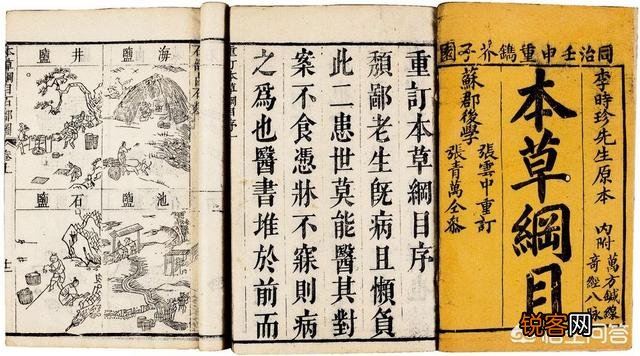 同治壬申重鐫芥子園
李時珍先生原本
內附
萬方鍼線
奇經八脉
本草綱目
蘇郡後學
張雲中重訂
張青萬仝參
重訂本草綱目序
頹鄙老生旣病且懶負
此二患世莫能醫其對
案不食憑牀不寐則病
之爲也醫書堆於前而
重訂本草綱目序
海鹽
井鹽
池鹽
石鹽
本草綱目石部圖
锐客网
悟空问答